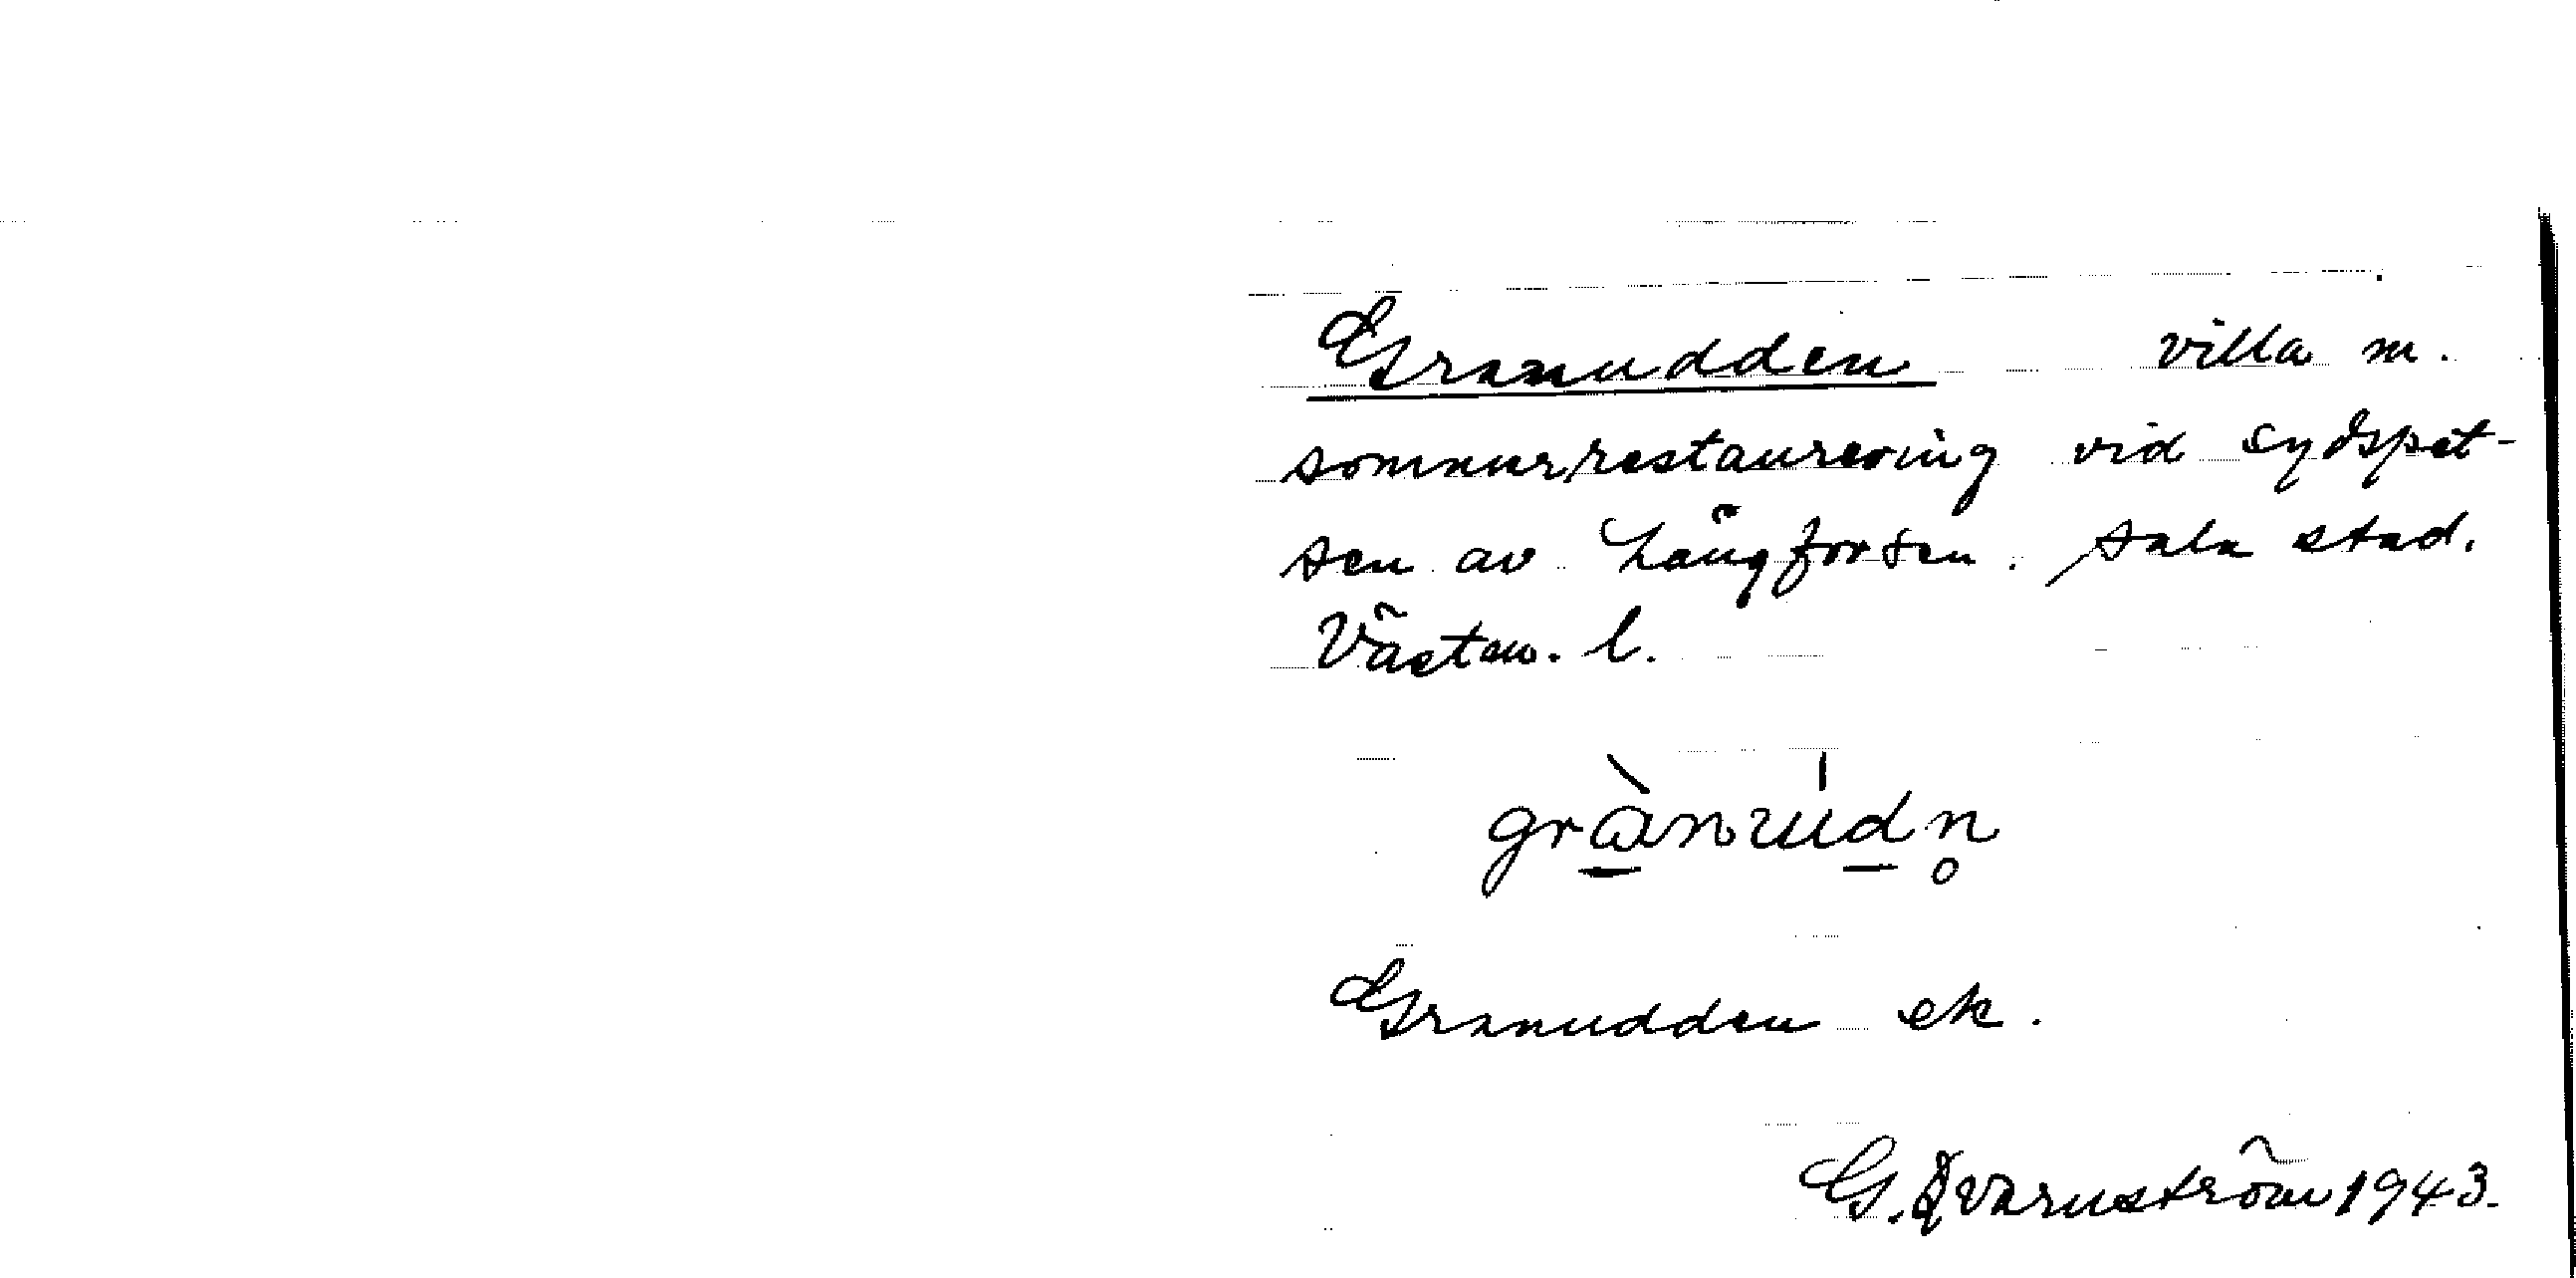 Granudden villa m.
sommarrestaurering vid sydspet-
sen av Långforsen. Sala stad.
Västm. l.
grànu̍dn̥
Granudden ek.
G. Qvarnström 1943.